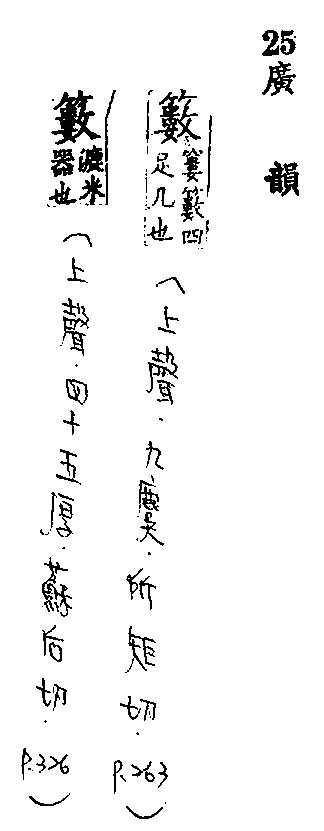 25廣韻
籔窶籔四足几也(上聲.九麌.所矩切.P.263)
籔漉米器也(上聲.四十五厚.蘇后切.P.326)